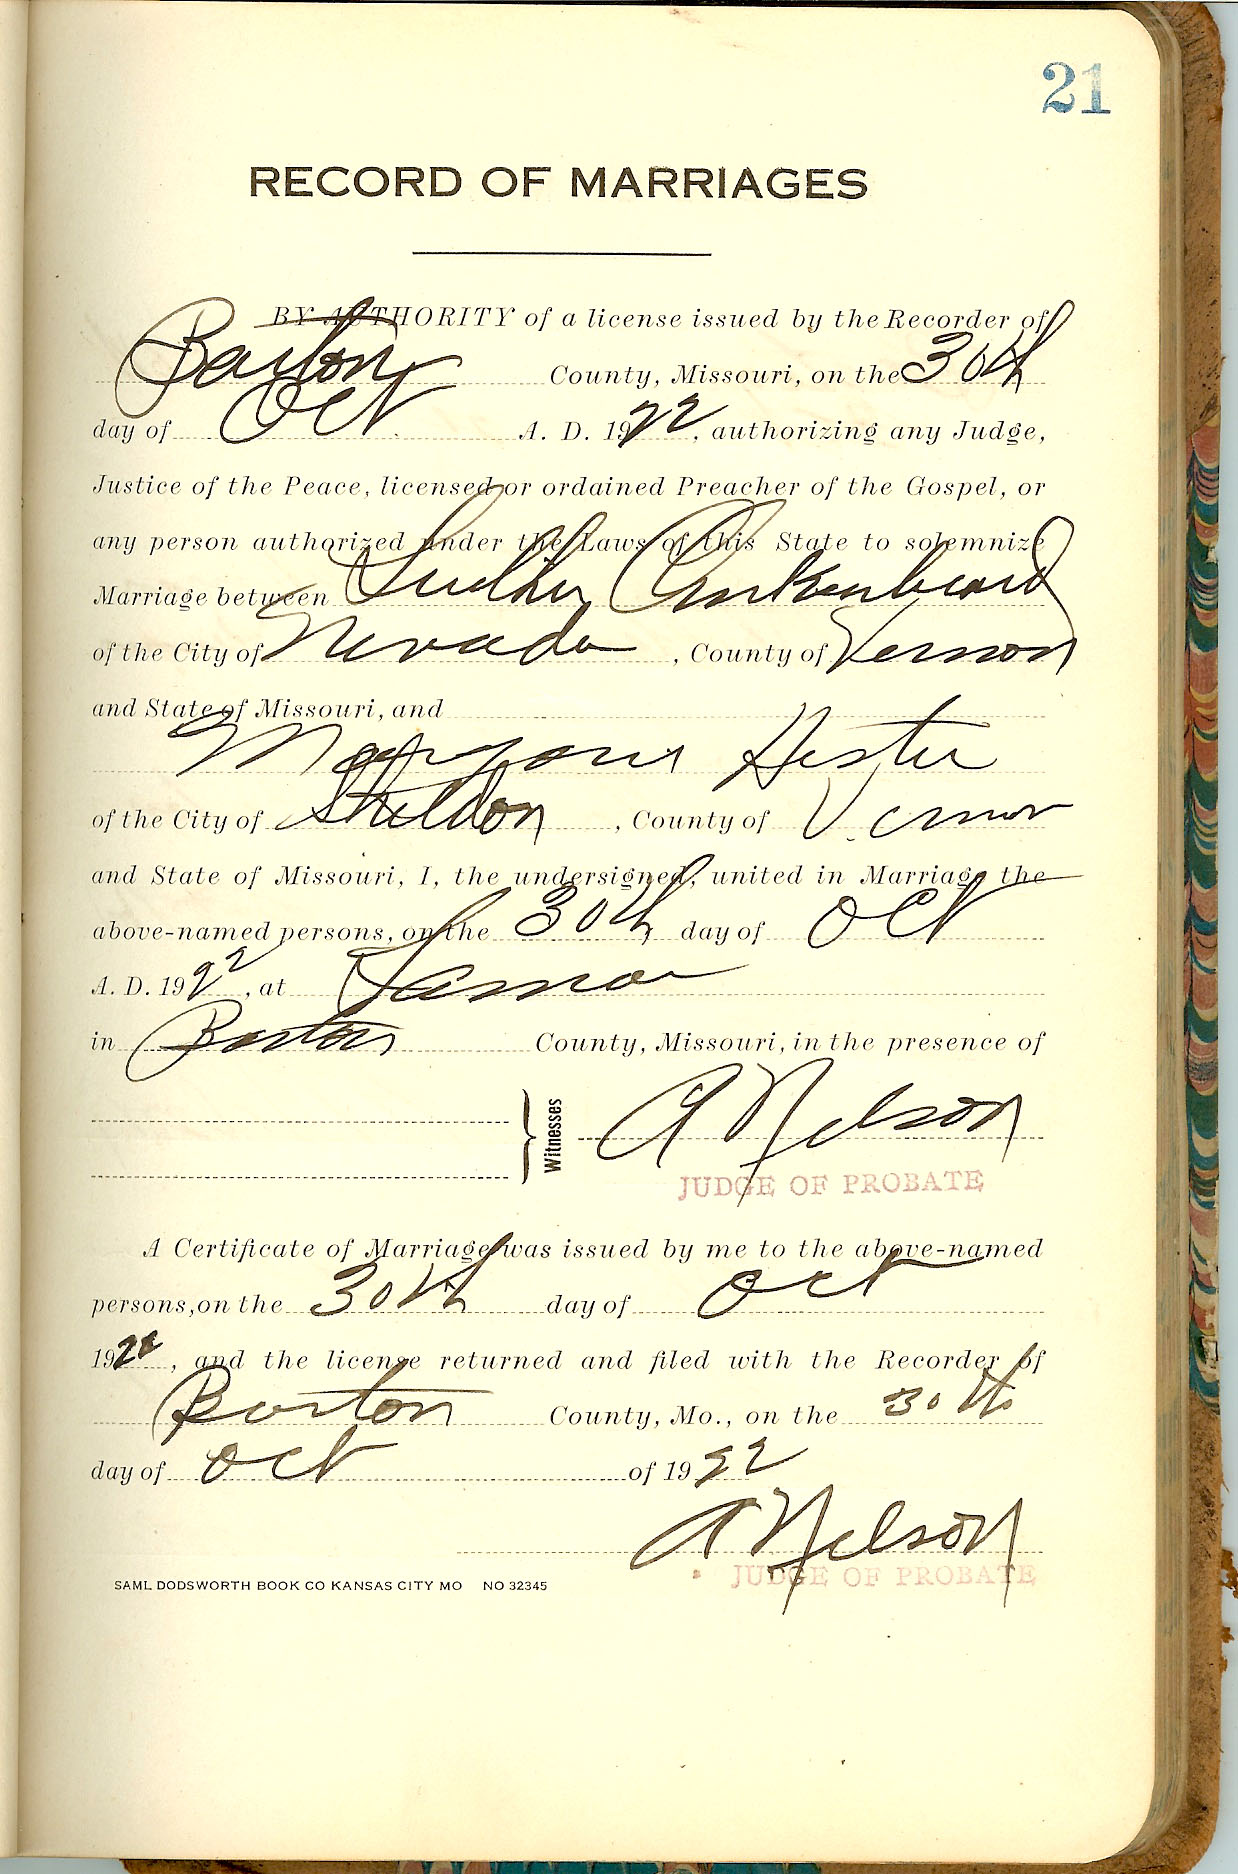 21
RECORD OF MARRIAGES
BY AUTHORITY of a license issued by the Recorder of
Barton County, Missouri, on the 30th
day of Oct A. D. 1922, authorizing any Judge,
Justice of the Peace, licensed or ordained Preacher of the Gospel, or
any person authorized under the Laws of this State to solemnize
Marriage between Luther Clinkenbeard
of the City of Nevada, County of Vernon
and State of Missouri, and
Marjorie Hester
of the City of Sheldon, County of Vernon
and State of Missouri, I, the undersigned, united in Marriage the
above-named persons, on the 30th day of Oct
A. D. 1922, at Lamar
in Barton County, Missouri, in the presence of
Witnesses A Nelson
JUDGE OF PROBATE
A Certificate of Marriage was issued by me to the above-named
persons, on the 30th day of Oct
1922, and the license returned and filed with the Recorder of
Barton County, Mo., on the 30th
day of Oct of 1922
A Nelson
JUDGE OF PROBATE
SAML DODSWORTH BOOK CO KANSAS CITY MO NO 32345